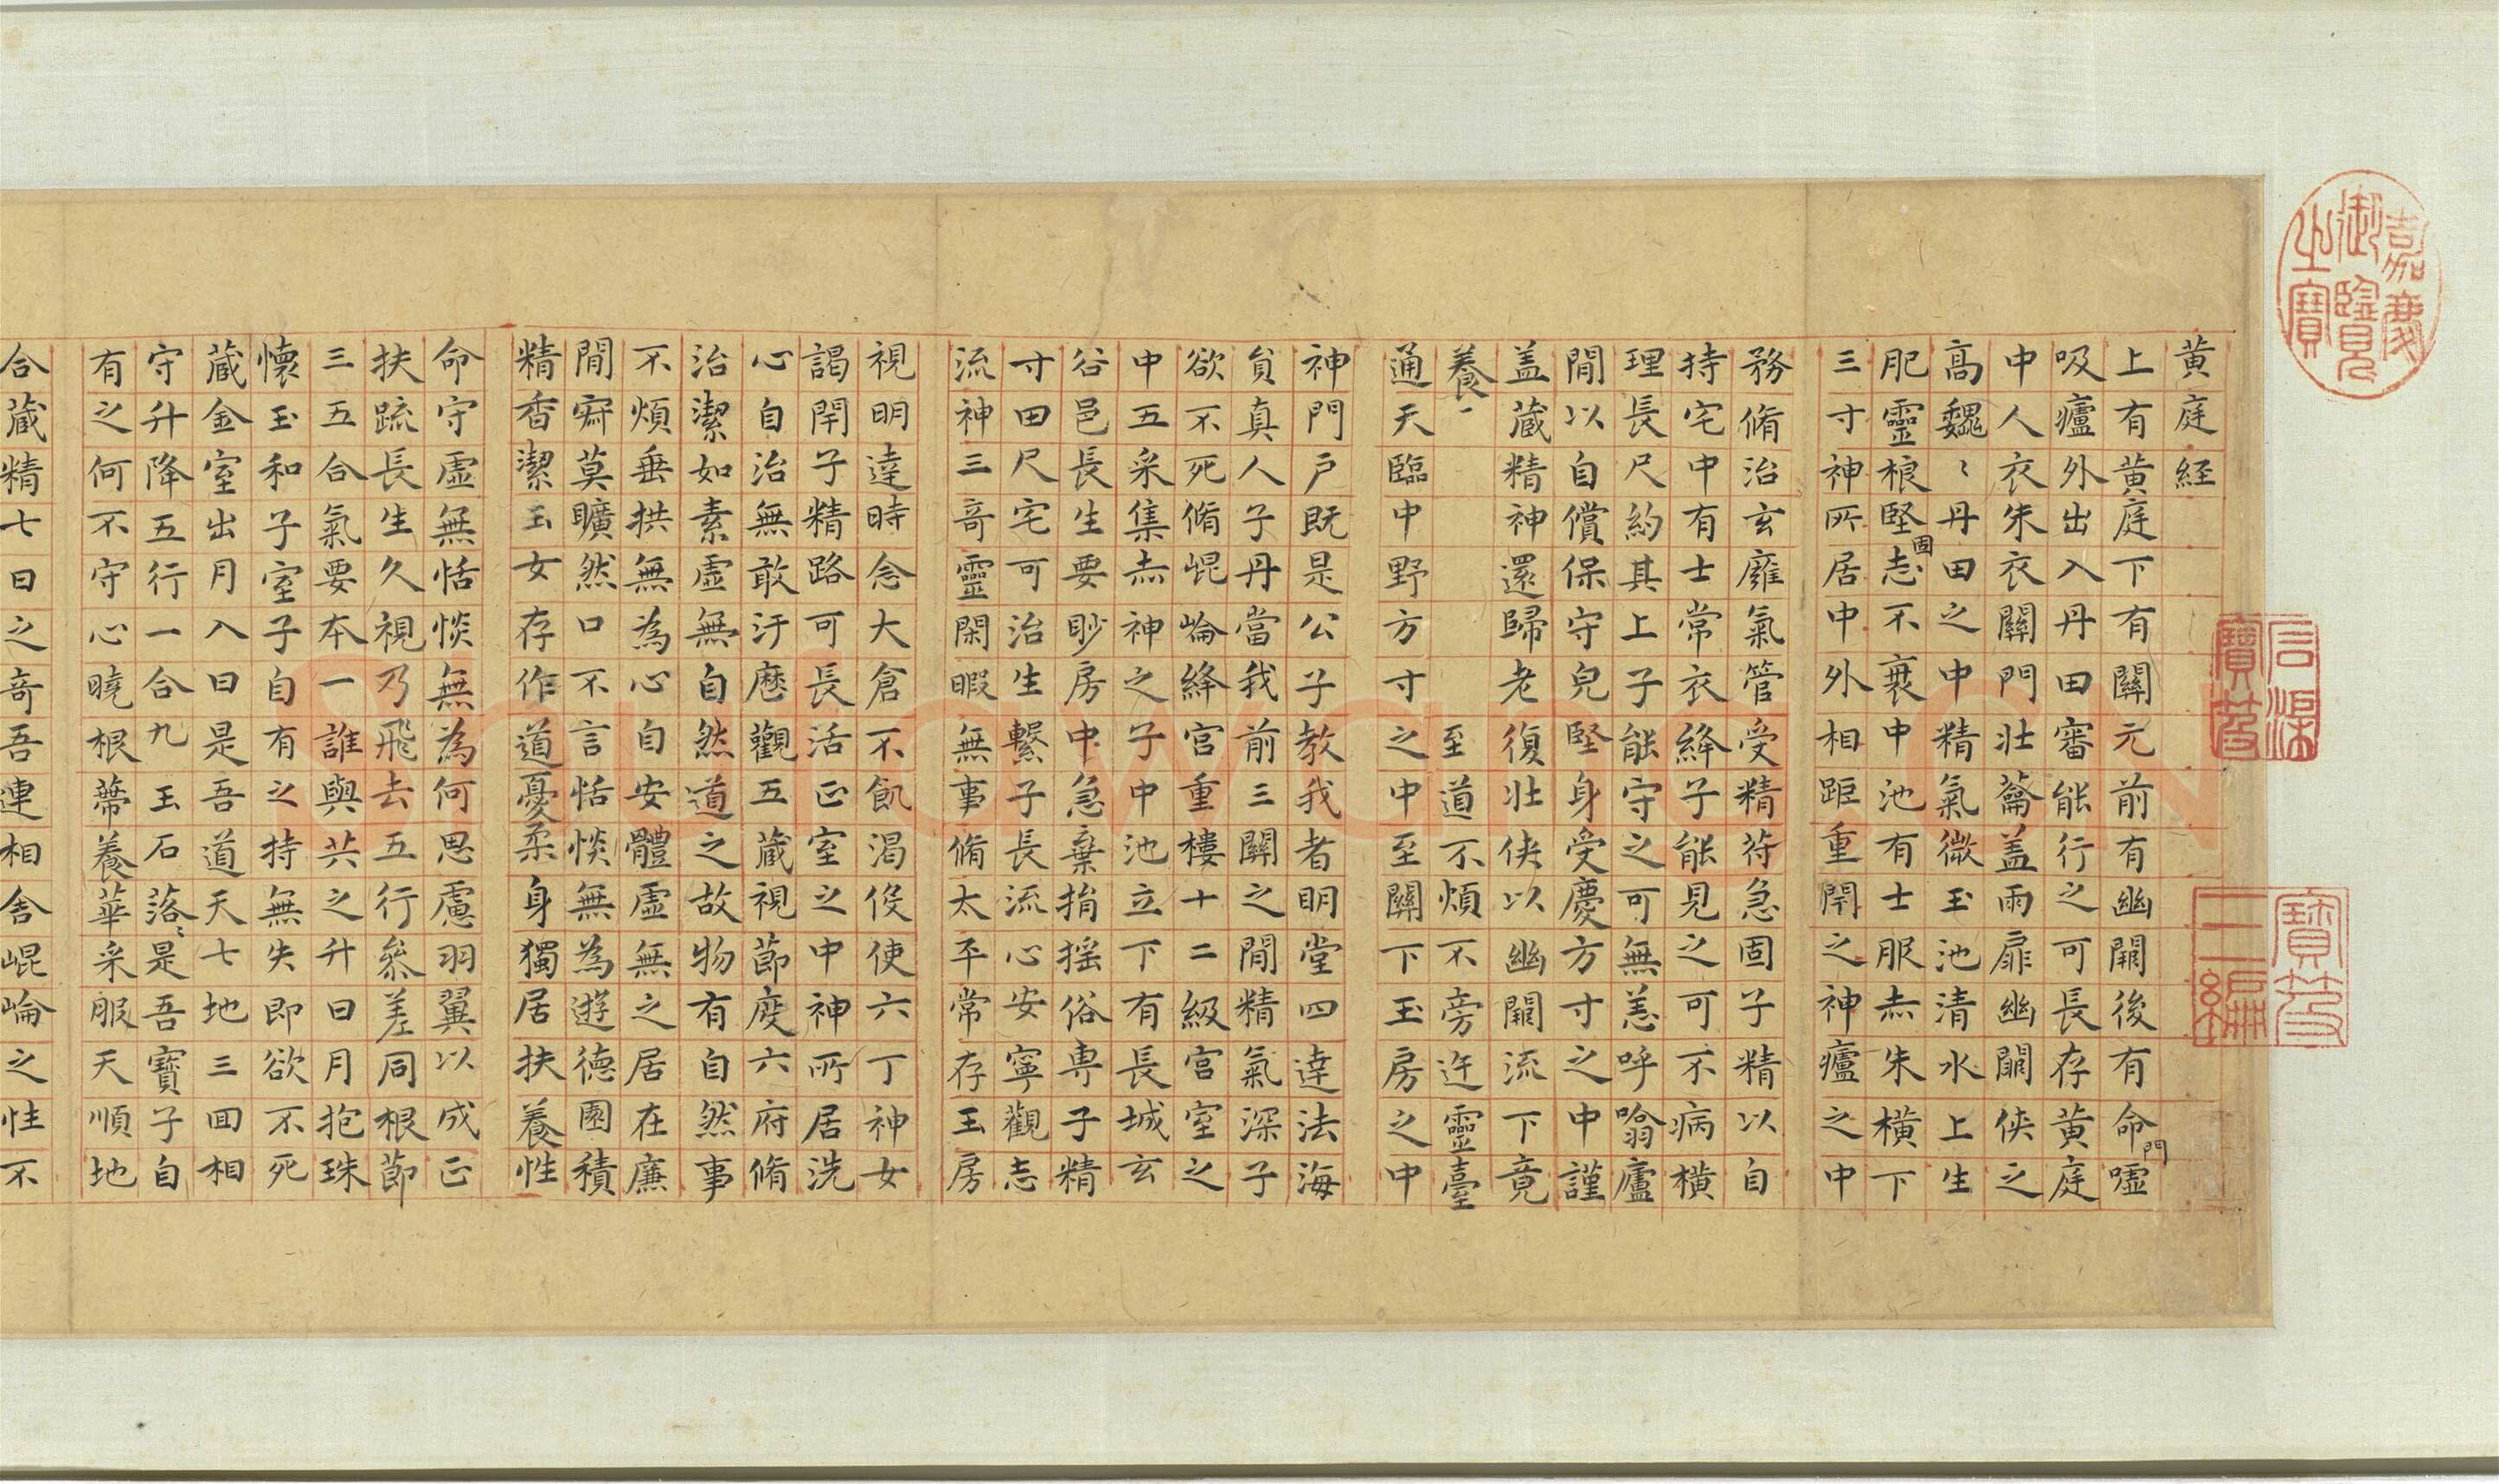 嘉慶御覽之寶
石渠寶笈
寶笈三編
黄庭経
上有黄庭下有關元前有幽闕後有命門噓
吸廬外出入丹田審能行之可長存黄庭
中人衣朱衣關門壯蘥盖兩扉幽闕俠之
髙魏〻丹田之中精氣微玉池清水上生
肥靈根堅固志不衰中池有士服赤朱橫下
三寸神所居中外相距重閇之神廬之中
務脩治玄廱氣管受精苻急固子精以自
持宅中有士常衣絳子能見之可不病橫
理長尺約其上子能守之可無恙呼噏廬
閒以自償保守皃堅身受慶方寸之中謹
盖蔵精神還歸老復壯俠以幽闕流下竟
養一　至道不煩不旁迕靈臺
通天臨中野方寸之中至關下玉房之中
神門戶既是公子教我者明堂四達法海
貟真人子丹當我前三關之閒精氣深子
欲不死脩崐崘絳宮重樓十二級宮室之
中五采集赤神之子中池立下有長城玄
谷邑長生要眇房中急棄捐揺俗専子精
寸田尺宅可治生繫子長流心安寧觀志
流神三竒靈閑暇無事脩太平常存玉房
視明達時念大倉不飢渇伇使六丁神女
謁閇子精路可長活正室之中神所居洗
心自治無敢汙歷觀五蔵視莭度六府脩
治潔如素虛無自然道之故物有自然事
不煩垂拱無為心自安體虛無之居在廉
閒寂莫曠然口不言恬惔無為遊德園積
精香潔玉女存作道憂柔身獨居扶養性
命守虛無恬惔無為何思慮羽翼以成正
扶䟽長生久視乃飛去五行叅差同根莭
三五合氣要本一誰與共之升日月抱珠
懐玉和子室子自有之持無失即欲不死
蔵金室出月入日是吾道天七地三回相
守升降五行一合九玉石落〻是吾寶子自
有之何不守心曉根蔕養華采服天順地
合蔵精七日之竒吾連相舎崐崘之性不